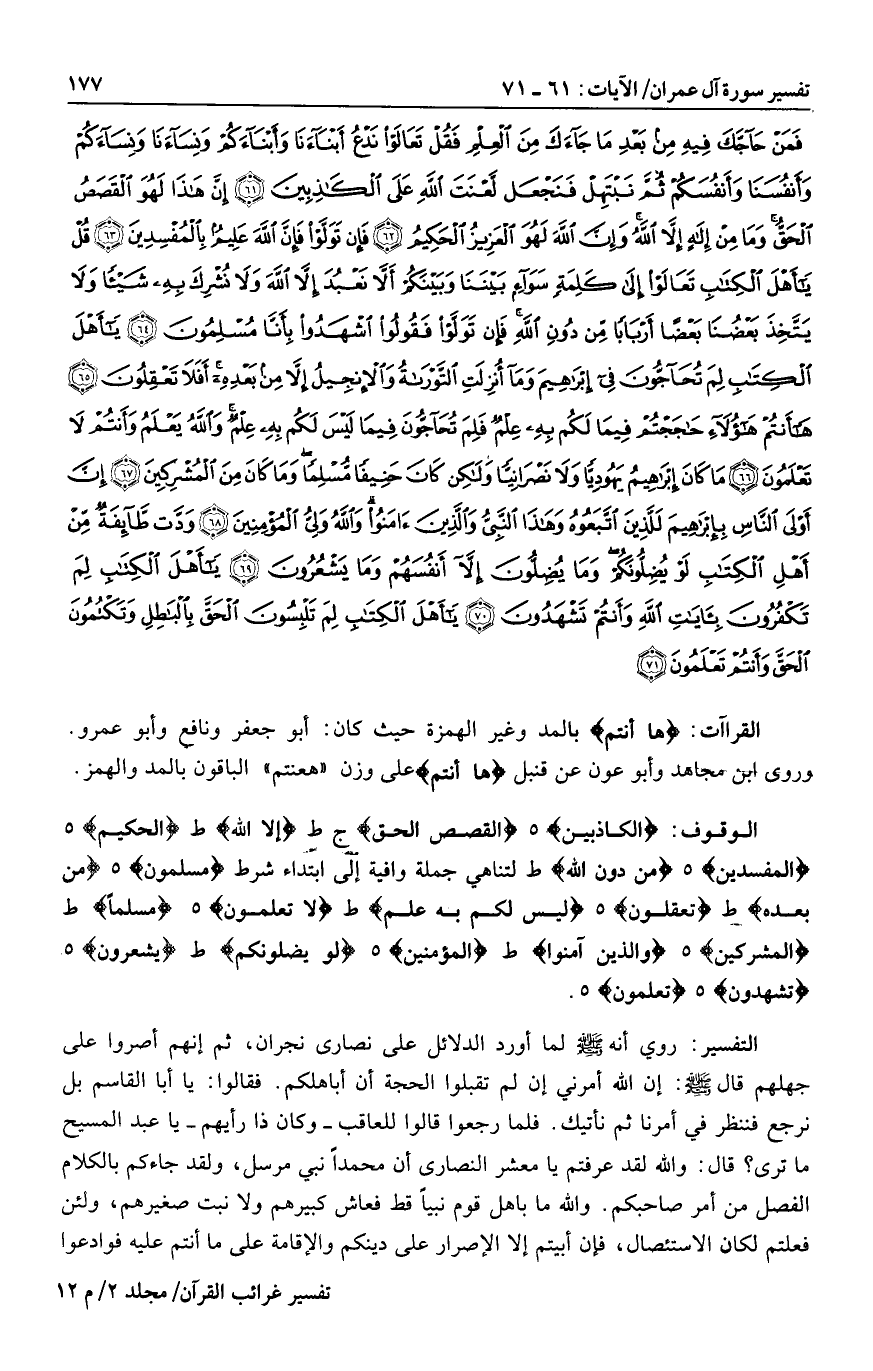 تفسير سورة آل عمران/ الآيات: ٦١ - ٧١ ١٧٧
فَمَنْ حَآجَّكَ فِيهِ مِنۢ بَعْدِ مَا جَآءَكَ مِنَ ٱلْعِلْمِ فَقُلْ تَعَالَوْا۟ نَدْعُ أَبْنَآءَنَا وَأَبْنَآءَكُمْ وَنِسَآءَنَا وَنِسَآءَكُمْ
وَأَنفُسَنَا وَأَنفُسَكُمْ ثُمَّ نَبْتَهِلْ فَنَجْعَل لَّعْنَتَ ٱللَّهِ عَلَى ٱلْكَـٰذِبِينَ ﴿٦١﴾ إِنَّ هَـٰذَا لَهُوَ ٱلْقَصَصُ
ٱلْحَقُّ ۚ وَمَا مِنْ إِلَـٰهٍ إِلَّا ٱللَّهُ ۚ وَإِنَّ ٱللَّهَ لَهُوَ ٱلْعَزِيزُ ٱلْحَكِيمُ ﴿٦٢﴾ فَإِن تَوَلَّوْا۟ فَإِنَّ ٱللَّهَ عَلِيمٌۢ بِٱلْمُفْسِدِينَ ﴿٦٣﴾ قُلْ
يَـٰٓأَهْلَ ٱلْكِتَـٰبِ تَعَالَوْا۟ إِلَىٰ كَلِمَةٍ سَوَآءٍۭ بَيْنَنَا وَبَيْنَكُمْ أَلَّا نَعْبُدَ إِلَّا ٱللَّهَ وَلَا نُشْرِكَ بِهِۦ شَيْـًٔا وَلَا
يَتَّخِذَ بَعْضُنَا بَعْضًا أَرْبَابًا مِّن دُونِ ٱللَّهِ ۚ فَإِن تَوَلَّوْا۟ فَقُولُوا۟ ٱشْهَدُوا۟ بِأَنَّا مُسْلِمُونَ ﴿٦٤﴾ يَـٰٓأَهْلَ
ٱلْكِتَـٰبِ لِمَ تُحَآجُّونَ فِىٓ إِبْرَٰهِيمَ وَمَآ أُنزِلَتِ ٱلتَّوْرَىٰةُ وَٱلْإِنجِيلُ إِلَّا مِنۢ بَعْدِهِۦٓ ۚ أَفَلَا تَعْقِلُونَ ﴿٦٥﴾
هَـٰٓأَنتُمْ هَـٰٓؤُلَآءِ حَـٰجَجْتُمْ فِيمَا لَكُم بِهِۦ عِلْمٌ فَلِمَ تُحَآجُّونَ فِيمَا لَيْسَ لَكُم بِهِۦ عِلْمٌ ۚ وَٱللَّهُ يَعْلَمُ وَأَنتُمْ لَا
تَعْلَمُونَ ﴿٦٦﴾ مَا كَانَ إِبْرَٰهِيمُ يَهُودِيًّا وَلَا نَصْرَانِيًّا وَلَـٰكِن كَانَ حَنِيفًا مُّسْلِمًا وَمَا كَانَ مِنَ ٱلْمُشْرِكِينَ ﴿٦٧﴾ إِنَّ
أَوْلَى ٱلنَّاسِ بِإِبْرَٰهِيمَ لَلَّذِينَ ٱتَّبَعُوهُ وَهَـٰذَا ٱلنَّبِىُّ وَٱلَّذِينَ ءَامَنُوا۟ ۗ وَٱللَّهُ وَلِىُّ ٱلْمُؤْمِنِينَ ﴿٦٨﴾ وَدَّت طَّآئِفَةٌ مِّنْ
أَهْلِ ٱلْكِتَـٰبِ لَوْ يُضِلُّونَكُمْ وَمَا يُضِلُّونَ إِلَّآ أَنفُسَهُمْ وَمَا يَشْعُرُونَ ﴿٦٩﴾ يَـٰٓأَهْلَ ٱلْكِتَـٰبِ لِمَ
تَكْفُرُونَ بِـَٔايَـٰتِ ٱللَّهِ وَأَنتُمْ تَشْهَدُونَ ﴿٧٠﴾ يَـٰٓأَهْلَ ٱلْكِتَـٰبِ لِمَ تَلْبِسُونَ ٱلْحَقَّ بِٱلْبَـٰطِلِ وَتَكْتُمُونَ
ٱلْحَقَّ وَأَنتُمْ تَعْلَمُونَ ﴿٧١﴾
القراآت: ﴿ها أنتم﴾ بالمد وغير الهمزة حيث كان: أبو جعفر ونافع وأبو عمرو.
وروى ابن مجاهد وأبو عون عن قنبل ﴿ها أنتم﴾ على وزن «هعنتم» الباقون بالمد والهمز.
الوقوف: ﴿الكاذبين﴾ ٥ ﴿القصص الحق﴾ ج ط ﴿إلا الله﴾ ط ﴿الحكيم﴾ ٥
﴿المفسدين﴾ ٥ ﴿من دون الله﴾ ط لتناهي جملة وافية إلى ابتداء شرط ﴿مسلمون﴾ ٥ ﴿من
بعده﴾ ط ﴿تعقلون﴾ ٥ ﴿ليس لكم به علم﴾ ط ﴿لا تعلمون﴾ ٥ ﴿مسلماً﴾ ط
﴿المشركين﴾ ٥ ﴿والذين آمنوا﴾ ط ﴿المؤمنين﴾ ٥ ﴿لو يضلونكم﴾ ط ﴿يشعرون﴾ ٥
﴿تشهدون﴾ ٥ ﴿تعلمون﴾ ٥.
التفسير: روي أنه ﷺ لما أورد الدلائل على نصارى نجران، ثم إنهم أصروا على
جهلهم قال ﷺ: إن الله أمرني إن لم تقبلوا الحجة أن أباهلكم. فقالوا: يا أبا القاسم بل
نرجع فننظر في أمرنا ثم نأتيك. فلما رجعوا قالوا للعاقب ـ وكان ذا رأيهم ـ يا عبد المسيح
ما ترى؟ قال: والله لقد عرفتم يا معشر النصارى أن محمداً نبي مرسل، ولقد جاءكم بالكلام
الفصل من أمر صاحبكم. والله ما باهل قوم نبياً قط فعاش كبيرهم ولا نبت صغيرهم، ولئن
فعلتم لكان الاستئصال، فإن أبيتم إلا الإصرار على دينكم والإقامة على ما أنتم عليه فوادعوا
تفسير غرائب القرآن/ مجلد ٢/ م ١٢